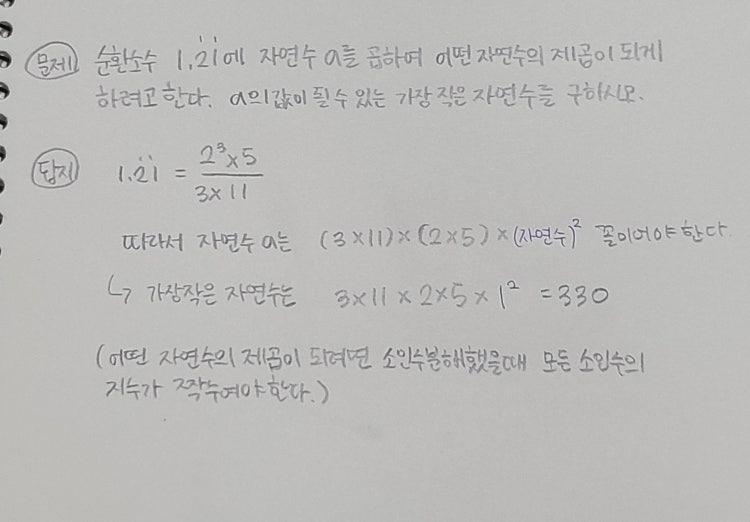 문제 순환소수 1.2̇1̇에 자연수 a를 곱하여 어떤 자연수의 제곱이 되게
하려고 한다. a의 값이 될 수 있는 가장 작은 자연수를 구하시오.
답지 1.2̇1̇ = 2³×5 / 3×11
따라서 자연수 a는 (3×11)×(2×5)×(자연수)² 꼴이어야 한다.
↳ 가장작은 자연수는 3×11×2×5×1² = 330
(어떤 자연수의 제곱이 되려면 소인수분해했을때 모든 소인수의
지수가 짝수여야한다.)